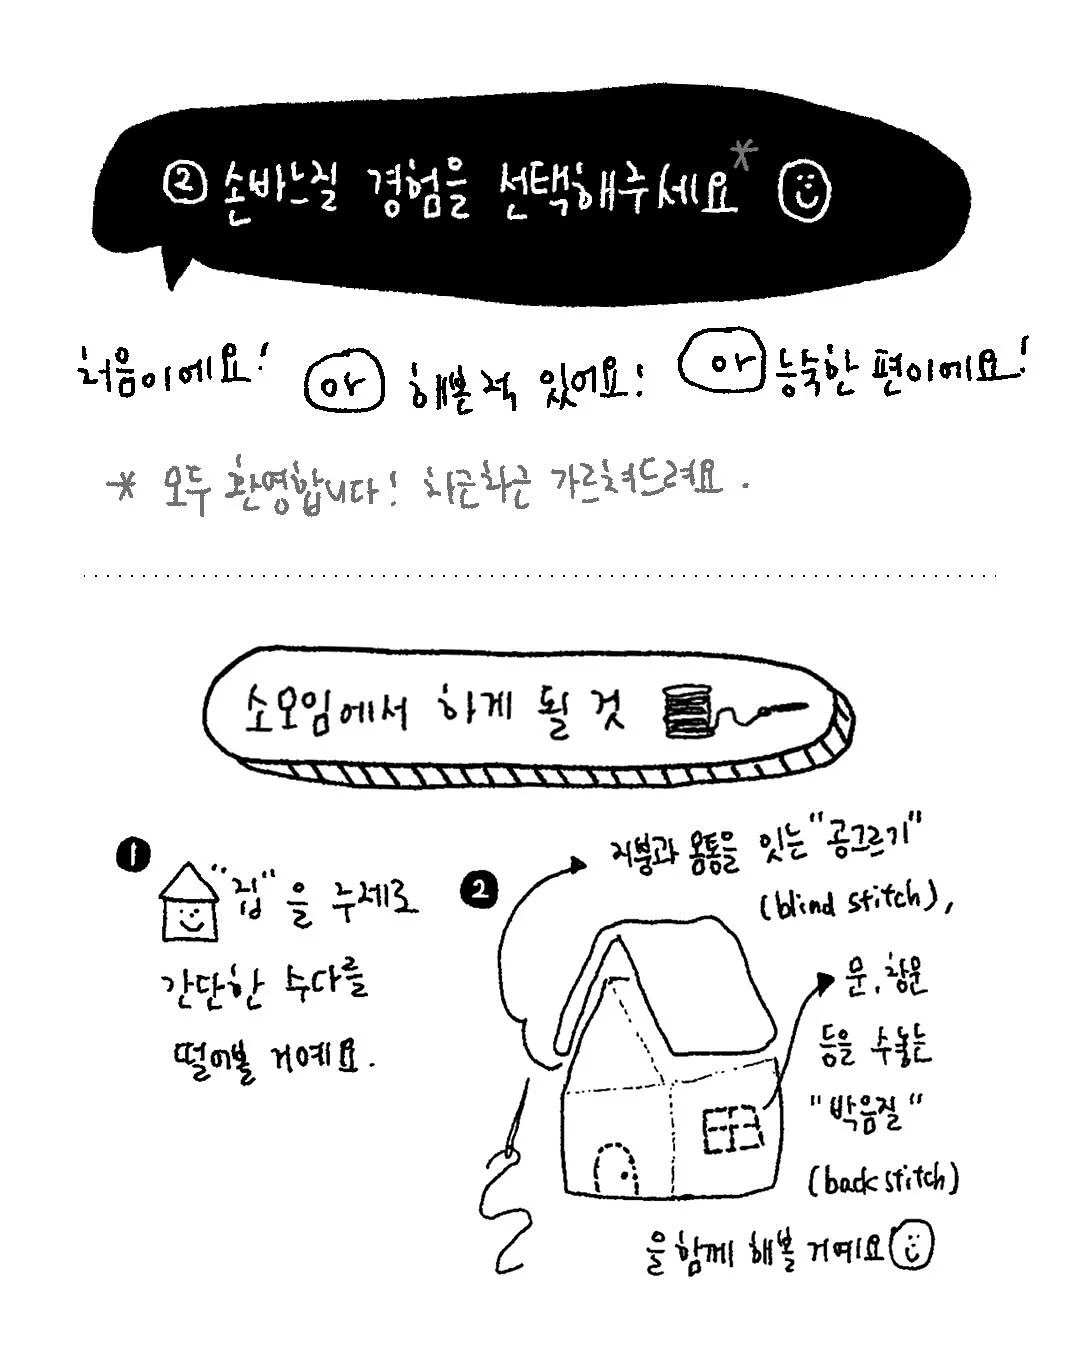 ② 손바느질 경험을 선택해주세요*
처음이에요! or 해본 적 있어요! or 능숙한 편이에요!
* 모두 환영합니다! 차근차근 가르쳐드려요.
소모임에서 하게 될 것
1 "집"을 주제로
간단한 수다를
떨어볼 거예요.
2 지붕과 몸통을 잇는 "공그르기"
(blind stitch),
문, 창문
등을 수놓는
"박음질"
(back stitch)
을 함께 해볼 거예요